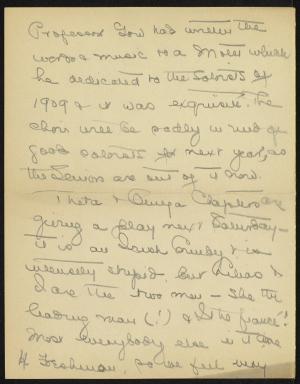 Professor Gow had written the
words & music to a Motet which
he dedicated to the soloists of
1909 & it was exquisite. The
choir will be sadly in need of
good soloists next year, as
the Seniors are out of it now.
Theta & Omega Chapters are
giving a play next Saturday -
it is an Irish Comedy & is
intensely stupid. But &
I are the two men - She the
leading man (!) & I the fiancé!
Most everybody else in it are
Freshman, so we feel very